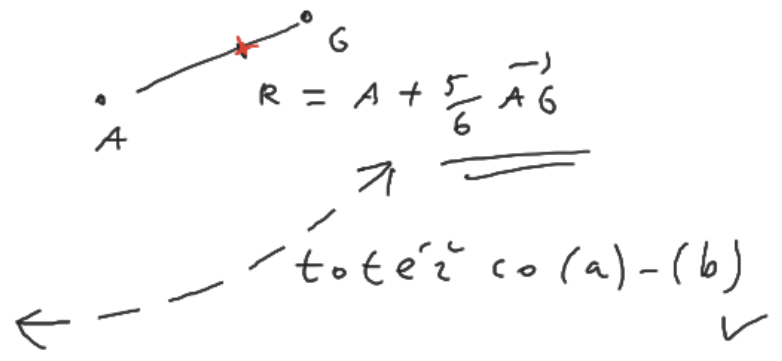 G
A
R = A + 5/6 AG⃗
totéž co (a)-(b)